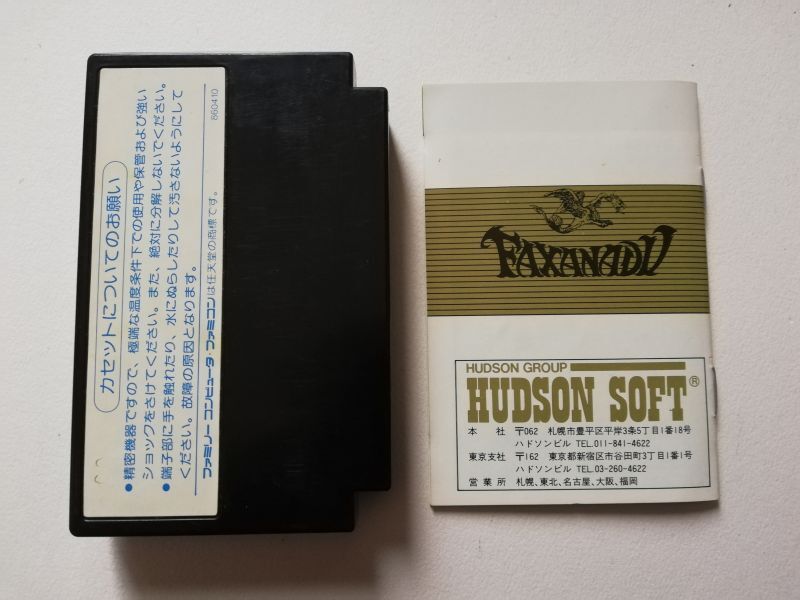 カセットについてのお願い
●精密機器ですので、極端な温度条件下での使用や保管および強い
ショックをさけてください。また、絶対に分解しないでください。
●端子部に手を触れたり、水にぬらしたりして汚さないようにして
ください。故障の原因となります。
ファミリーコンピュータ・ファミコンは任天堂の商標です。
860410
FAXANADU
HUDSON GROUP
HUDSON SOFT®
本 社 〒062 札幌市豊平区平岸3条5丁目1番18号
ハドソンビル TEL.011-841-4622
東京支社 〒162 東京都新宿区市谷田町3丁目1番1号
ハドソンビル TEL.03-260-4622
営業所 札幌、東北、名古屋、大阪、福岡